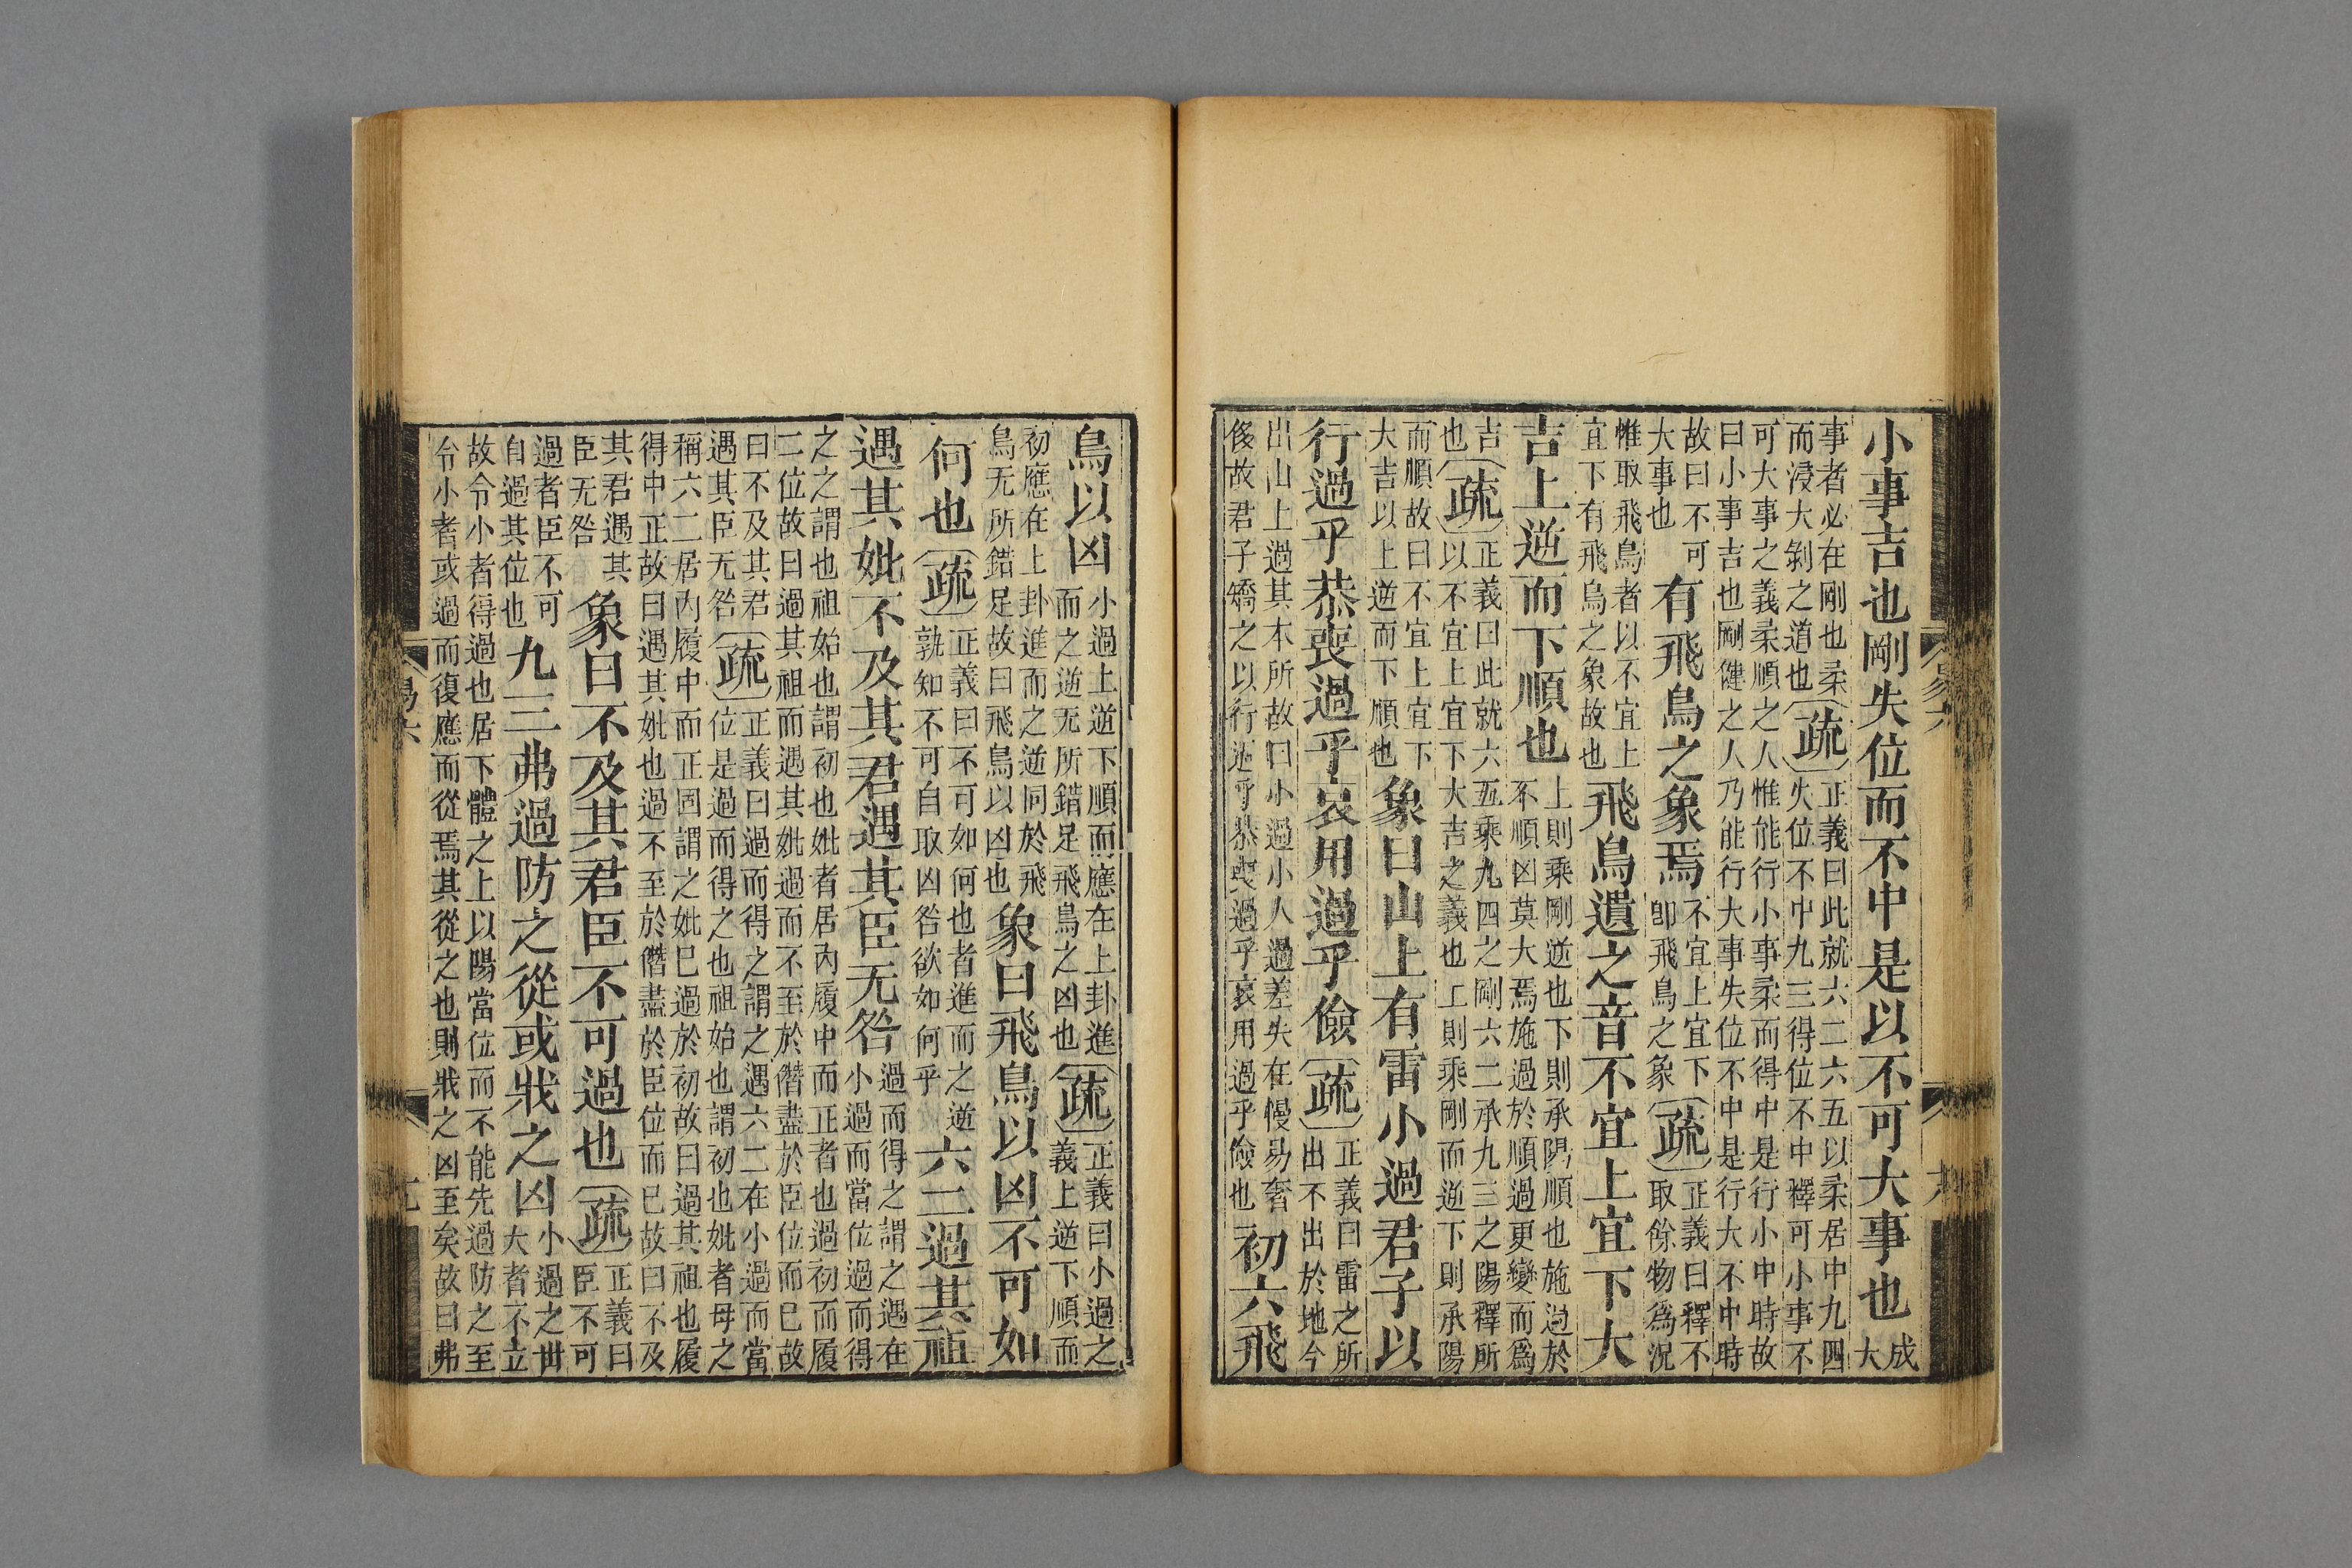 小事吉也剛失位而不中是以不可大事也成大
事者必在剛也柔
而浸大剝之道也
疏
正義曰此就六二六五以柔居中九四
失位不中九三得位不中釋可小事不
可大事之義柔順之人惟能行小事柔而得中是行小中時故
曰小事吉也剛健之人乃能行大事失位不中是行大不中時
故曰不可
大事也
有飛鳥之象焉
不宜上宜下
卽飛鳥之象
疏
正義曰釋不
取餘物爲況
惟取飛鳥者以不宜上
宜下有飛鳥之象故也
飛鳥遺之音不宜上宜下大
吉上逆而下順也
上則乘剛逆也下則承陽順也施過於
不順凶莫大焉施過於順過更變而爲
吉
也
疏
正義曰此就六五乘九四之剛六二承九三之陽釋所
以不宜上宜下大吉之義也上則乘剛而逆下則承陽
而順故曰不宜上宜下
大吉以上逆而下順也
象曰山上有雷小過君子以
行過乎恭喪過乎哀用過乎儉
疏
正義曰雷之所
出不出於地今
出山上過其本所故曰小過小人過差失在慢易奢
侈故君子矯之以行過乎恭喪過乎哀用過乎儉也
初六飛
鳥以凶
小過上逆下順而應在上卦進
而之逆无所錯足飛鳥之凶也
疏
正義曰小過之
義上逆下順而
初應在上卦進而之逆同於飛
鳥无所錯足故曰飛鳥以凶也
象曰飛鳥以凶不可如
何也
疏
正義曰不可如何也者進而之逆
孰知不可自取凶咎欲如何乎
六二過其祖
遇其妣不及其君遇其臣无咎
過而得之謂之遇在
小過而當位過而得
之之謂也祖始也謂初也妣者居內履中而正者也過初而履
二位故曰過其祖而遇其妣過而不至於僭盡於臣位而已故
曰不及其君
遇其臣无咎
疏
正義曰過而得之謂之遇六二在小過而當
位是過而得之也祖始也謂初也妣者母之
稱六二居內履中而正固謂之妣已過於初故曰過其祖也履
得中正故曰遇其妣也過不至於僭盡於臣位而已故曰不及
其君遇其
臣无咎
象曰不及其君臣不可過也
疏
正義曰
臣不可
過者臣不可
自過其位也
九三弗過防之從或戕之凶
小過之世
大者不立
故令小者得過也居下體之上以陽當位而不能先過防之至
令小者或過而復應而從焉其從之也則戕之凶至矣故曰弗